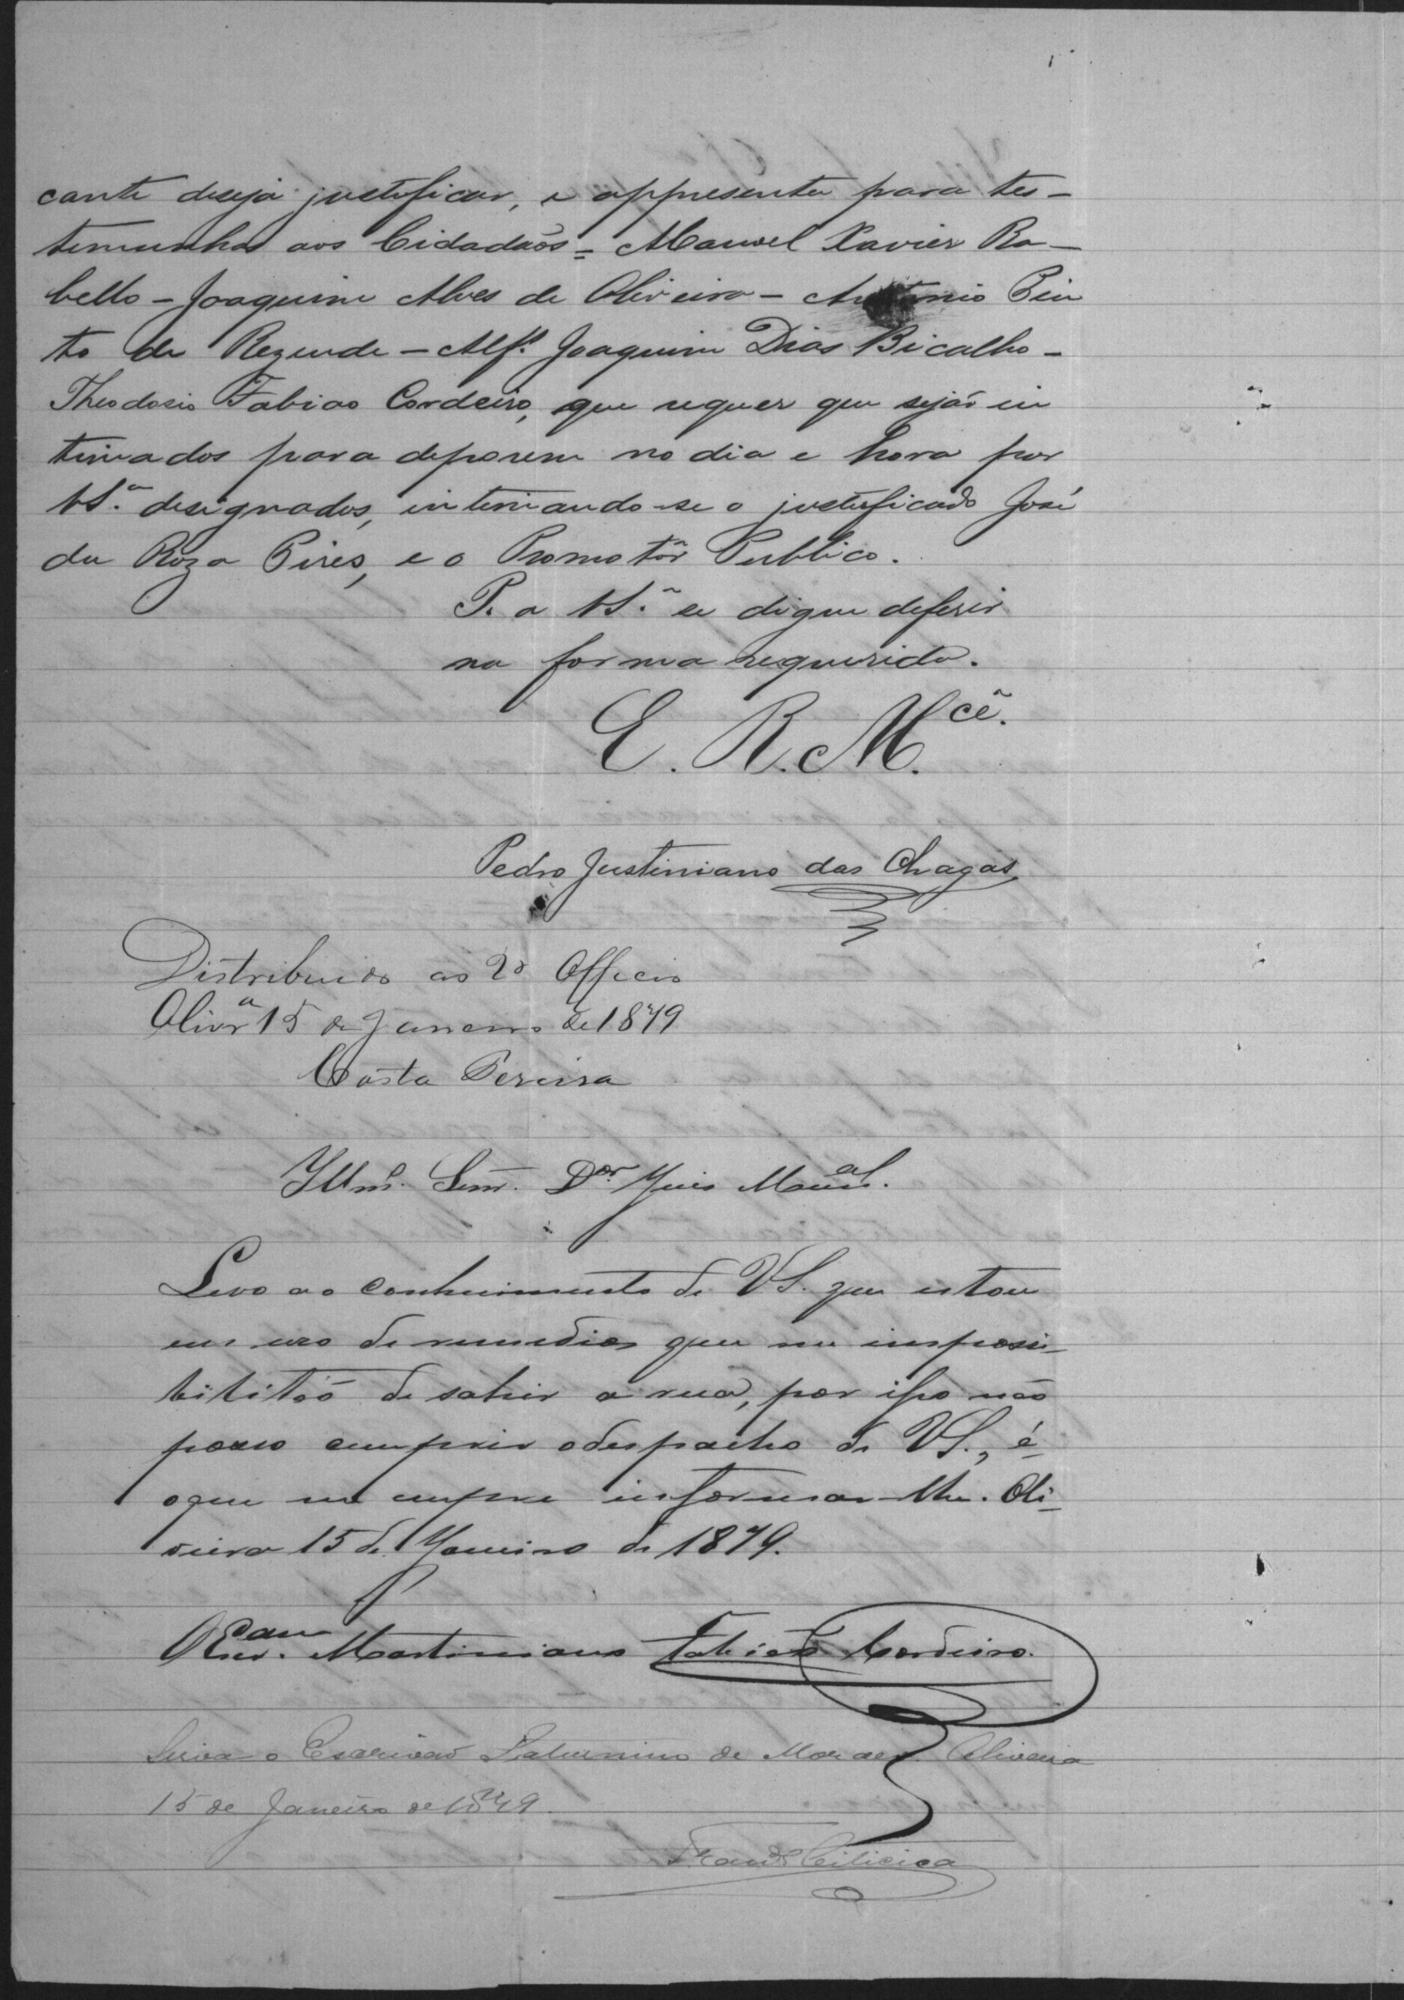 cante deseja justificar, e appresenta para tes-
temunhas aos Cidadaõs = Manoel Xavier Ra-
bello - Joaquim Alves de Oliveira - Antonio Pin
to de Rezende - Alfs. Joaquim Dias Bicalho -
Theodosio Fabiao Cordeiro, que requer que sejão in
timados para deporem no dia e hora por
VSª. designados, intimando-se o justificado José
da Roza Pires, e o Promotôr Publico.
P. a VSª. se digne deferir
na forma requerida.
E. R. Mcê.
Pedro Justiniano das Chagas
Distribuido ao 2º Officio
Olivrª 15 de Janeiro de 1879
Costa Pereira
Illmº. Senr. Dor. Juis Manal.
Levo ao conhecimento de VS. que estou
em uso de remedios que me impossi-
bilitão de sahir a rua, por isso não
posso cumprir o despacho de VS., é
o que me cumpre informar-lhe. Oli-
veira 15 de Janeiro de 1879.
O Escam. Martiniano Fabião Cordeiro.
Sirva o Escrivaõ Saturnino de Moraes. Oliveira
15 de Janeiro de 1879.